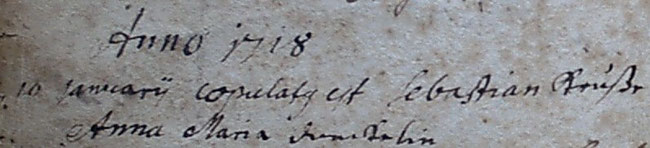 Anno 1718
10 Januarij copulatq est Sebastian
Anna Maria